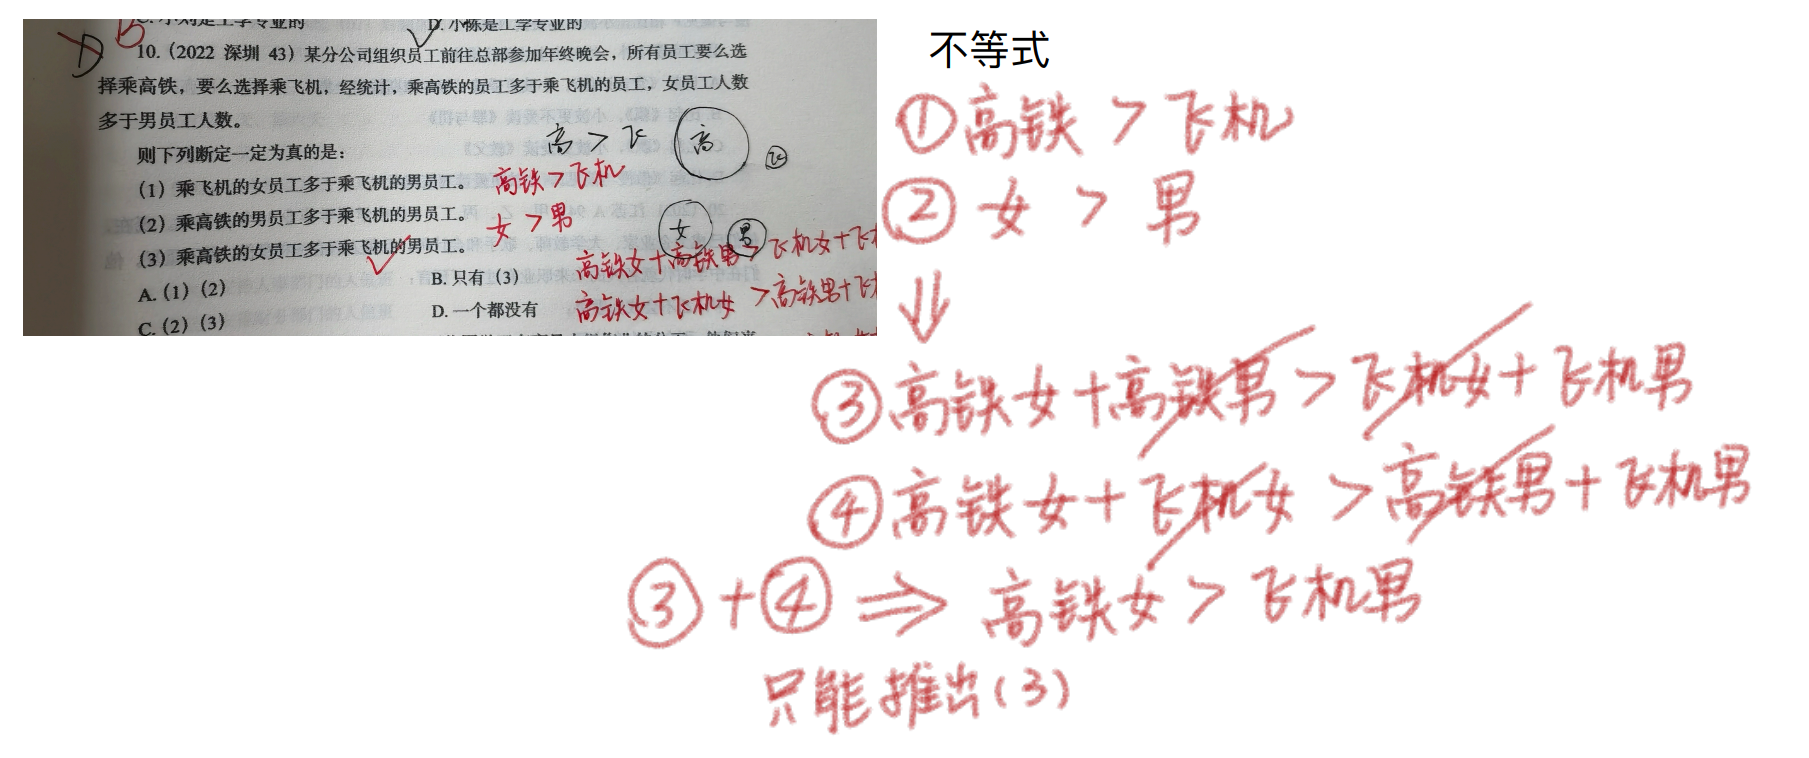 C. 小刘是工学专业的
D. 小陈是工学专业的
D
B
10.（2022 深圳 43）某分公司组织员工前往总部参加年终晚会，所有员工要么选
择乘高铁，要么选择乘飞机，经统计，乘高铁的员工多于乘飞机的员工，女员工人数
多于男员工人数。
高 > 飞
高
飞
则下列断定一定为真的是：
（1）乘飞机的女员工多于乘飞机的男员工。
高铁 > 飞机
（2）乘高铁的男员工多于乘飞机的男员工。
女 > 男
女
男
（3）乘高铁的女员工多于乘飞机的男员工。
高铁女+高铁男 > 飞机女+飞
A.（1）（2）
B. 只有（3）
高铁女+飞机女 > 高铁男+飞
C.（2）（3）
D. 一个都没有
不等式
① 高铁 > 飞机
② 女 > 男
⇓
③ 高铁女+高铁男 > 飞机女+飞机男
④ 高铁女+飞机女 > 高铁男+飞机男
③ + ④ ⇒ 高铁女 > 飞机男
只能推出(3)